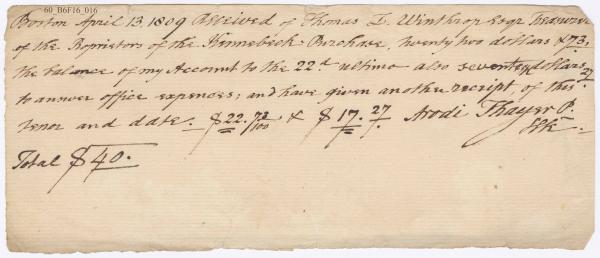 60_B6F16_016
Boston April 13. 1809 Received of Thomas L. Winthrop Esqr Treasurer
of the Proprietors of the Kennebeck Purchase, twenty two dollars &73/
the balance of my Account to the 22d ultimo also seventeen dollars 27
to answer office expences; and have given another receipt, of this
tenor and date. $22.73/100 & $17.27 Arodi Thayer P.
Clk
Total $40.